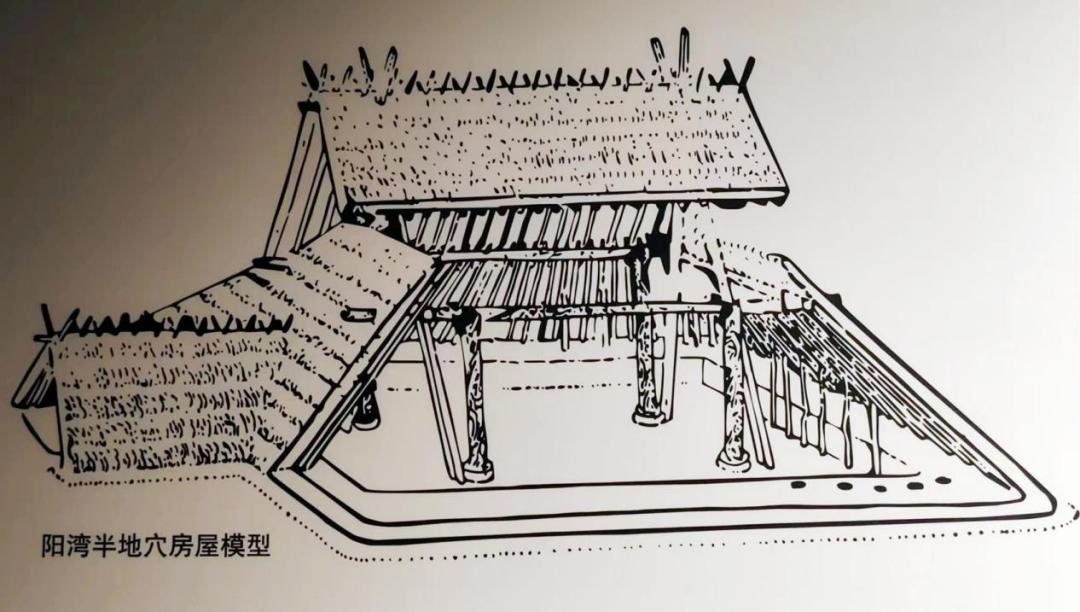 阳湾半地穴房屋模型